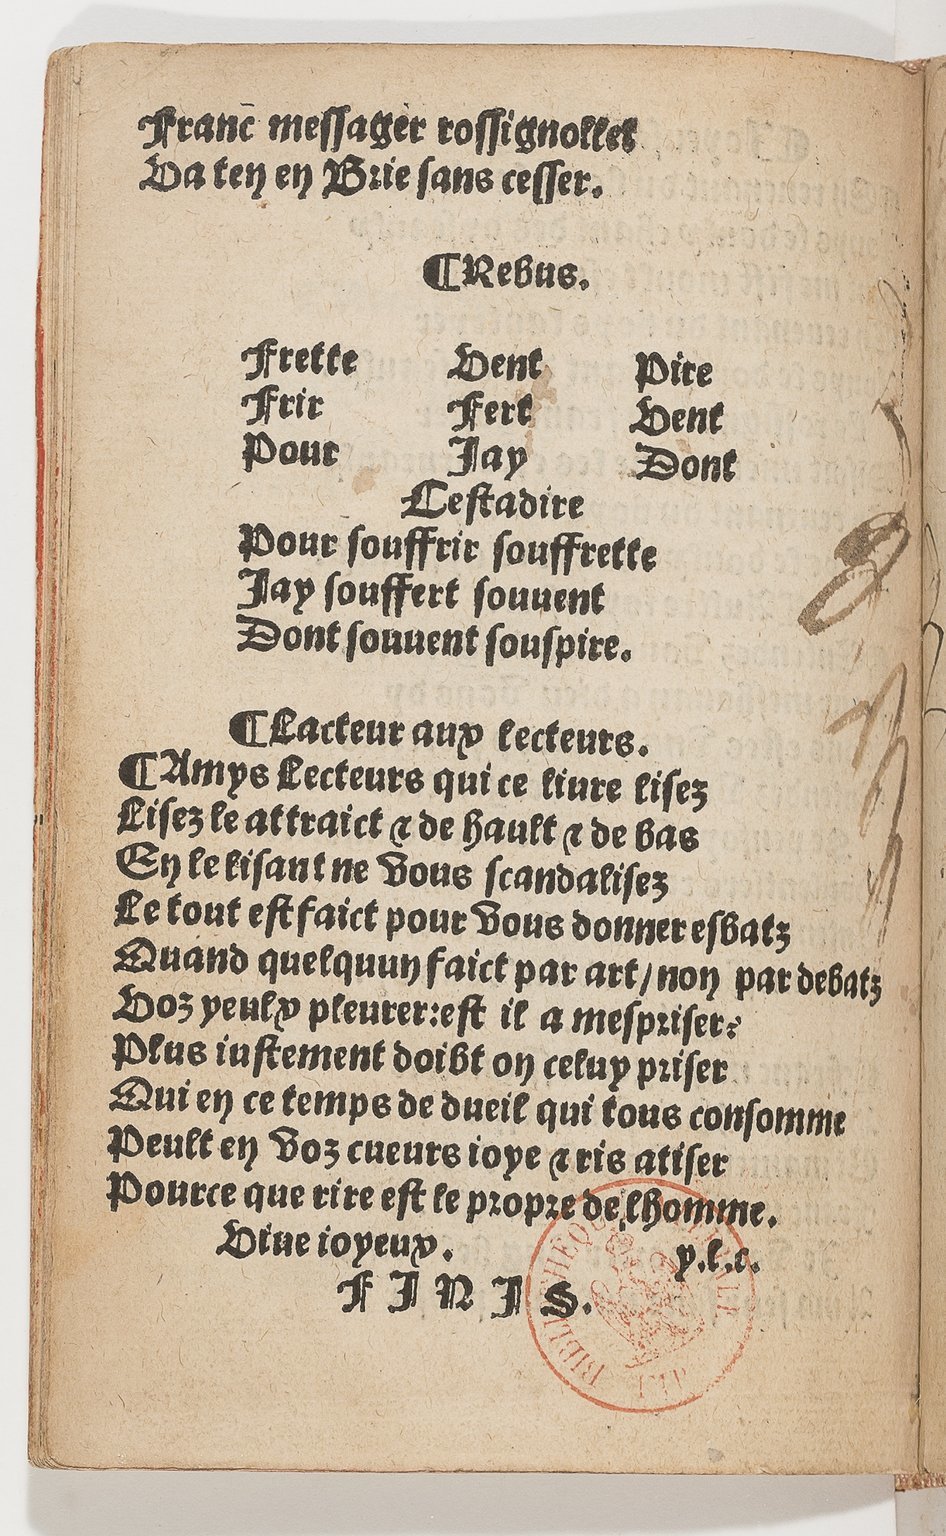 Franc̄ messager rossignollet
Va ten en Brie sans cesser.
¶Rebus.
Frette Vent Pire
Frir Fert Vent
Pour Jay Dont
Cestadire
Pour souffrir souffrette
Jay souffert souuent
Dont souuent souspire.
¶Lacteur aux lecteurs.
¶Amys Lecteurs qui ce liure lisez
Lisez le attraict & de hault & de bas
En le lisant ne vous scandalisez
Le tout est faict pour vous donner esbatz
Quand quelquun faict par art/ non par debatz
Voz yeulx pleurer: est il a mespriser?
Plus iustement doibt on celuy priser
Qui en ce temps de dueil qui tous consomme
Peult en voz cueurs ioye & ris atiser
Pource que rire est le propre de lhomme.
Viue ioyeux. y.l.c.
FINIS.